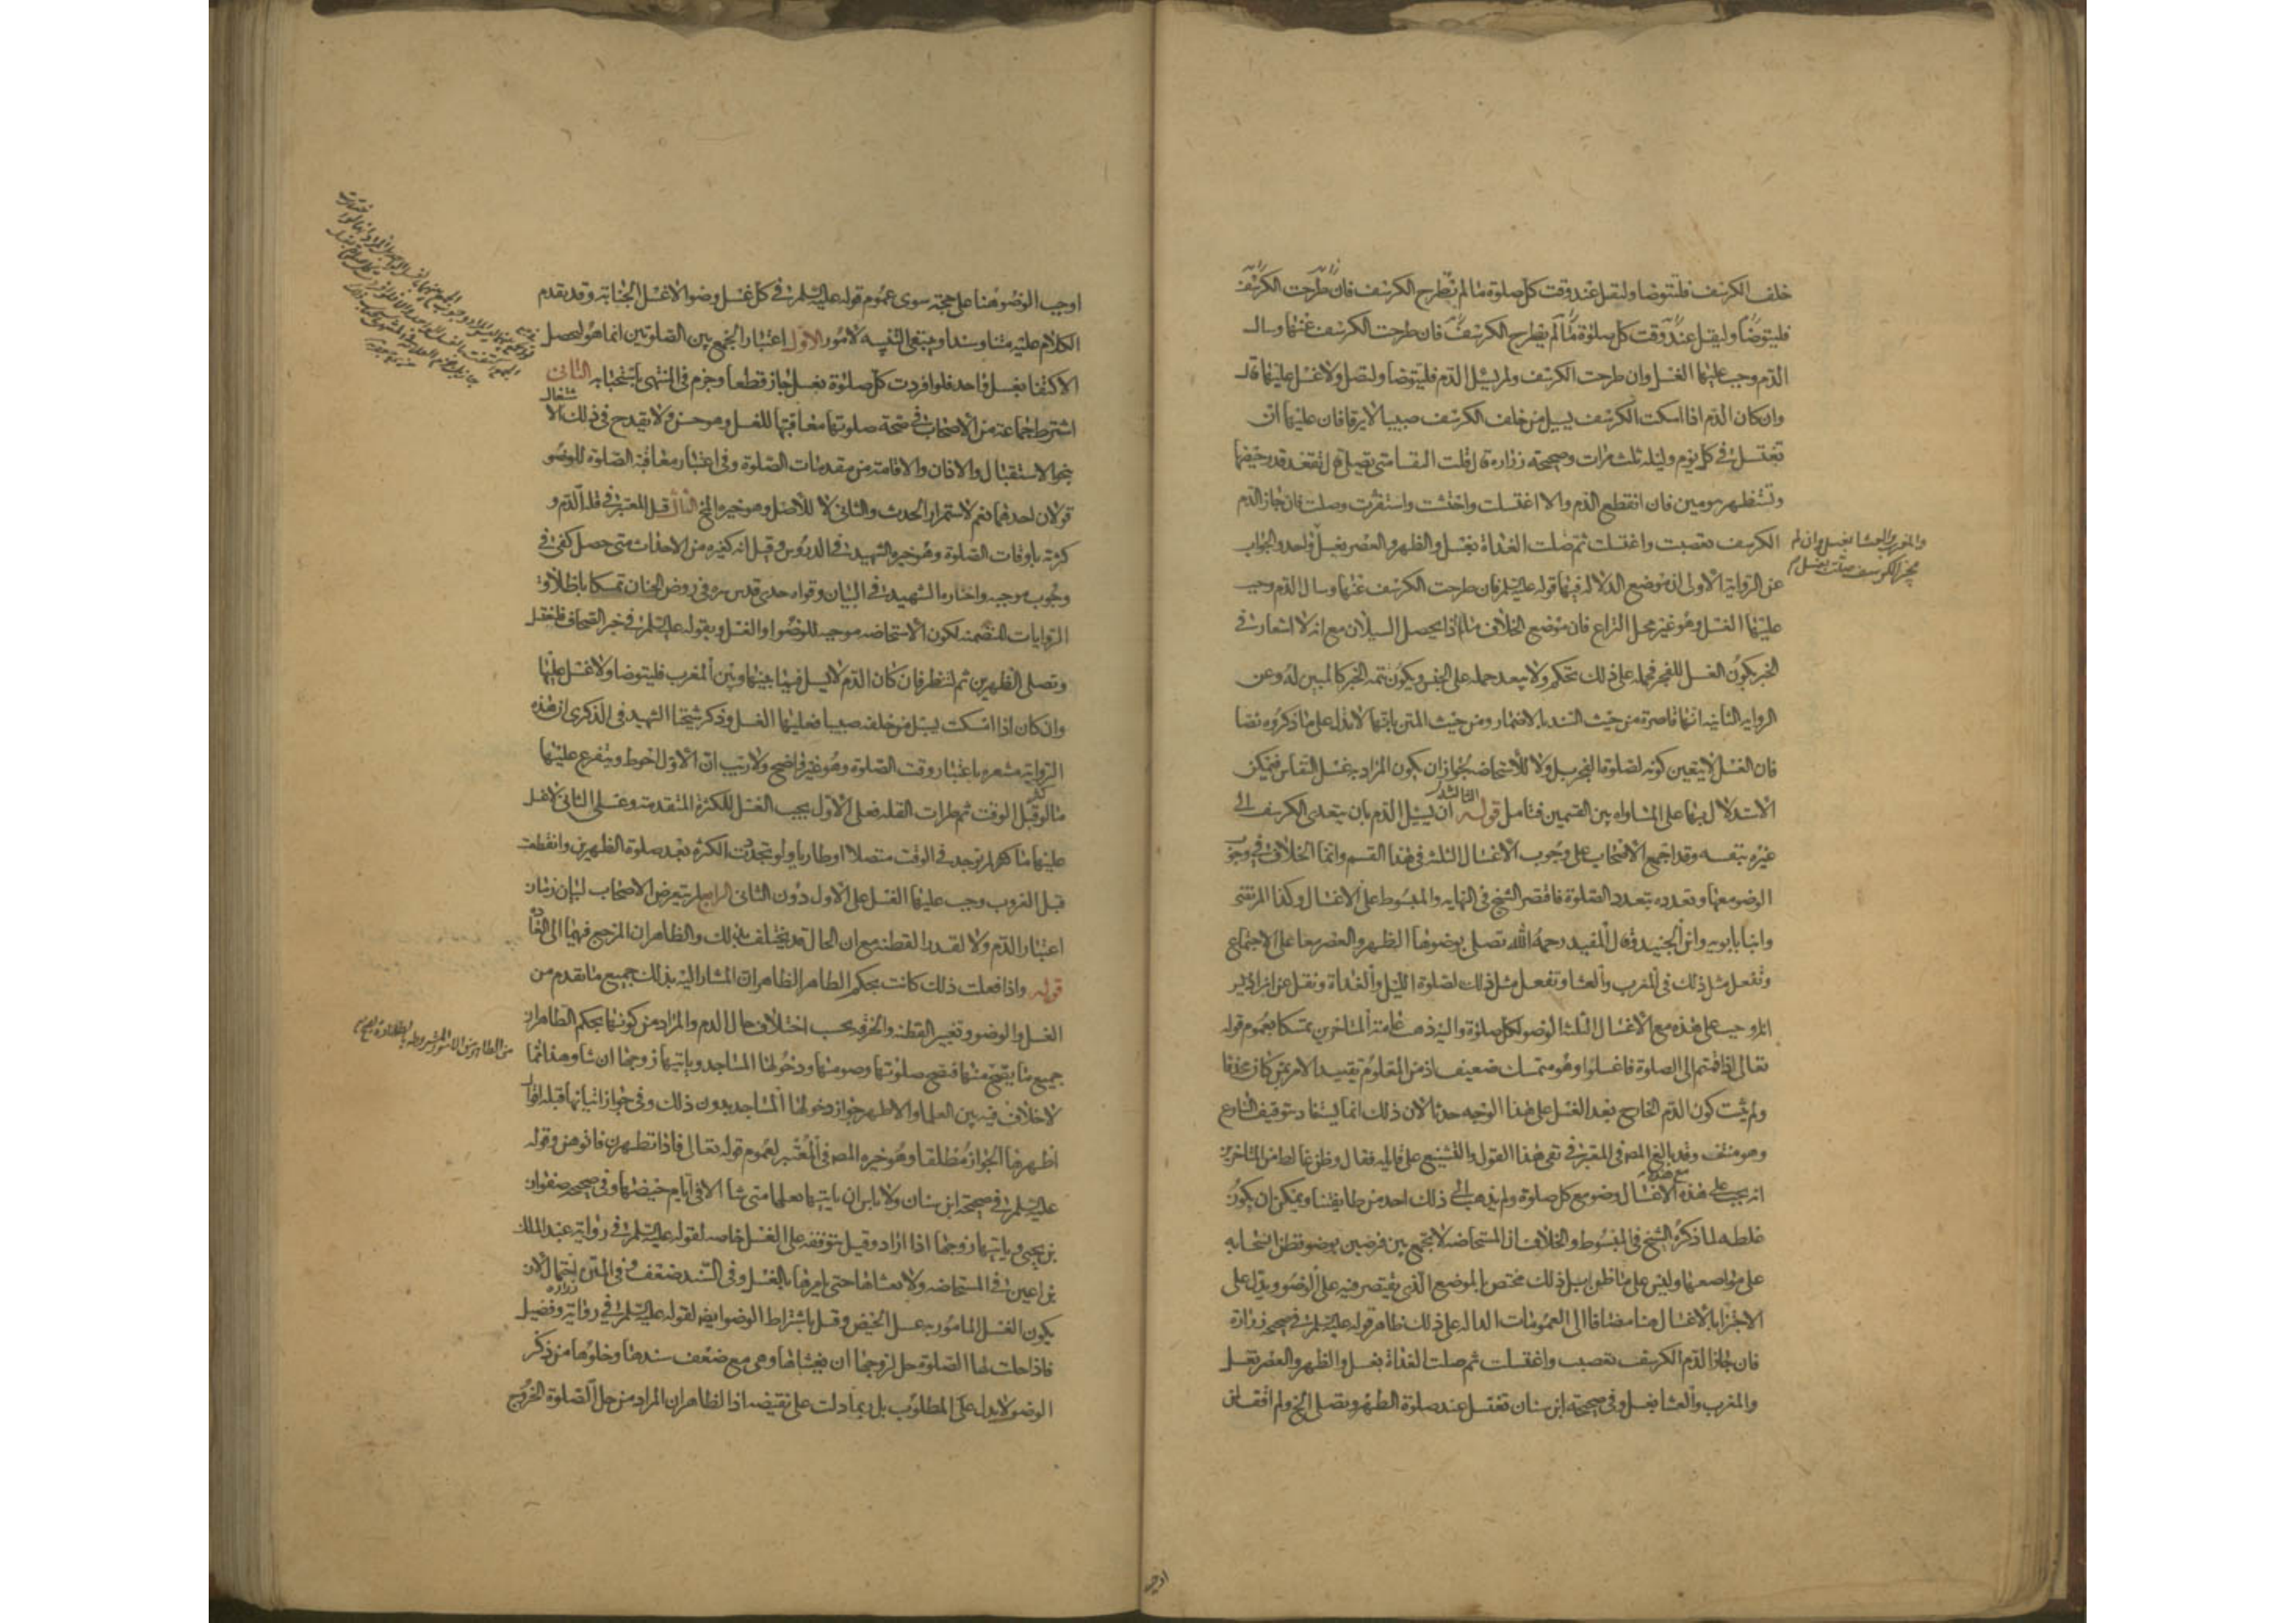 خلف الكرسف فلتتوضا ولتصل عند وقت كل صلوة ما لم تطرح الكرسف فان طرحت الكرسف
فليتوضا وليصل عند وقت كل صلوة ما لم يطرح الكرسف فان طرحت الكرسف عنها وسال
الدم وجب عليها الغسل وان طرحت الكرسف ولم يسل الدم فليتوضا ولتصل ولا غسل عليها قال
وان كان الدم اذا امسكت الكرسف يسيل من خلف الكرسف صبيبا لا يرقا فان عليها ان
تغتسل في كل يوم وليله ثلث مرات وصحيحة زراره قال قلت النفسا متى تصلى قال تقعد قدر حيضها
وتستظهر بيومين فان انقطع الدم والا اغتسلت واحتشت واستثفرت وصلت فان جاز الدم
الكرسف تعصبت واغتسلت ثم صلت الغداة بغسل والظهر والعصر بغسل واحد والجواب
والمغرب والعشا بغسل وان لم
يجز الكرسف صلت بغسل
عن الرواية الاولى ان موضع الدلاله فيها قوله عليه السلم فان طرحت الكرسف عنها وسال الدم وجب
عليها الغسل وهو غير محل النزاع فان موضع الخلاف ما اذا لم يحصل السيلان مع انه لا اشعار في
الخبر بكون الغسل للفجر فحمله على ذلك تحكم ولا يبعد حمله على الجنس ويكون تتمة الخبر كالمبين له وعن
الرواية الثانيه انها قاصرة من حيث السند بالاضمار ومن حيث المتن بانها لا تدل على ما ذكروه نصا
فان الغسل لا يتعين كونه لصلوة الفجر بل ولا للاستحاضه لجواز ان يكون المراد به غسل النفاس فيمكن
الاستدلال بها على المساواه بين القسمين فتامل قوله الثالثه ان يسيل الدم بان يتعدى الكرسف الى
غيره بنفسه وقد اجمع الاصحاب على وجوب الاغسال الثلث في هذا القسم وانما الخلاف في وجوب
الوضو معها وتعدده بتعدد الصلوة فاقتصر الشيخ في النهايه والمبسوط على الاغسال وكذا المرتضى
وابنا بابويه وابن الجنيد وقال المفيد رحمه الله تصلى بوضوها الظهر والعصر معا على الاجتماع
وتفعل مثل ذلك في المغرب والعشا وتفعل مثل ذلك لصلوة الليل والغداة ونقل عن ابن ادريس
انه اوجب على هذه مع الاغسال الثلثة الوضو لكل صلوة واليه ذهب عامة المتاخرين تمسكا بعموم قوله
تعالى اذا قمتم الى الصلوة فاغسلوا وهو متمسك ضعيف اذ من المعلوم تقييد الامر بمن كان محدثا
ولم يثبت كون الدم الخارج بعد الغسل على هذا الوجه حدثا لان ذلك انما يستفاد بتوقيف الشارع
وهو منتف وقد بالغ المص في المعتبر في نفي هذا القول والتشنيع على قائليه فقال وظن غالط من المتاخرين
انه يجب على هذه مع هذه الاغسال وضو مع كل صلوة ولم يذهب الى ذلك احد من طايفتنا ويمكن ان يكون
غلطه لما ذكره الشيخ في المبسوط والخلاف ان المستحاضه لا تجمع بين فرضين بوضو فظن انسحابه
على مواضعها وليس على ما ظن بل ذلك مختص بالموضع الذى يقتصر فيه على الوضو ويدل على
الاجتزا بالاغسال هنا مضافا الى العمومات الداله على ذلك ظاهر قوله عليه السلم في صحيحة زرارة
فان جاز الدم الكرسف تعصبت واغتسلت ثم صلت الغداة بغسل والظهر والعصر بغسل
والمغرب والعشا بغسل وفي صحيحة ابن سنان تغتسل عند صلوة الظهر وتصلى الخ ولم اقف لمن
اوجب
اوجب الوضو هنا على حجة سوى عموم قوله عليه السلم في كل غسل وضو الا غسل الجنابة وقد تقدم
الكلام عليه متنا وسندا وينبغى التنبيه لامور الاول اعتبار الجمع بين الصلوتين انما هو ليحصل
الاكتفا بغسل واحد فلو افردت كل صلوة بغسل جاز قطعا وجزم في المنتهى باستحبابه الثانى
اشترط جماعة من الاصحاب في صحة صلوتها معاقبتها للغسل وهو حسن ولا يقدح في ذلك الاشتغال
بنحو الاستقبال والاذان والاقامة من مقدمات الصلوة وفي اعتبار معاقبة الصلوة للوضو
قولان احدهما نعم لاستمرار الحدث والثانى لا للاصل وهو خيرة المخ الثالث قيل المعتبر في قلة الدم و
كثرته باوقات الصلوة وهو خيرة الشهيد في الدروس وقيل انه كغيره من الاحداث متى حصل كفى في
وجوب موجبه واختاره الشهيد في البيان وقواه جدى قدس سره في روض الجنان تمسكا باطلاق
الروايات المتضمنه لكون الاستحاضه موجبه للوضوا والغسل وبقوله عليه السلم في خبر الصحاف فلتغتسل
وتصلى الظهرين ثم لتنظر فان كان الدم لا يسيل فيما بينها وبين المغرب فليتوضا ولا غسل عليها
وان كان اذا امسكت يسيل من خلفه صبيبا فعليها الغسل وذكر شيخنا الشهيد في الذكرى ان هذه
الرواية مشعره باعتبار وقت الصلوة وهو غير واضح ولا ريب ان الاول احوط ويتفرع عليها
ما لو كثر قبل الوقت ثم طرات القله فعلى الاول يجب الغسل للكثرة المتقدمة وعلى الثانى لا غسل
عليها ما لم توجد في الوقت متصلا او طاريا ولو تجددت الكثره بعد صلوة الظهرين وانقطعت
قبل الغروب وجب عليها الغسل على الاول دون الثانى الرابع لم يتعرض الاصحاب لبيان زمان
اعتبار الدم ولا لقدر القطنه مع ان الحال قد يختلف بذلك والظاهر ان المرجع فيهما الى العادة
قوله واذا فعلت ذلك كانت بحكم الطاهر الظاهر ان المشار اليه بذلك جميع ما تقدم من
الغسل والوضو وتغيير القطنه والخرقه بحسب اختلاف حال الدم والمراد من كونها بحكم الطاهر ان
جميع ما يصح منها فتصح صلوتها وصومها ودخولها المساجد وياتيها زوجها ان شا وهذا مما
لا خلاف فيه بين العلما والاظهر جواز دخولها المساجد بدون ذلك وفي جواز اتيانها قبله اقوال
اظهرها الجواز مطلقا وهو خيرة المص في المعتبر لعموم قوله تعالى فاذا تطهرن فاتوهن وقوله
عليه السلم في صحيحة ابن سنان ولا باس ان ياتيها بعلها متى شا الا في ايام حيضها وفي صحيحة صفوان
بن يحيى وياتيها زوجها اذا اراد وقيل بتوقفه على الغسل خاصه لقوله عليه السلم في رواية عبد الملك
بن اعين في المستحاضه ولا يغشاها حتى يامرها بالغسل وفي السند ضعف وفي المتن احتمال لان
يكون الغسل المامور به غسل الحيض وقيل باشتراط الوضوايضا لقوله عليه السلم في رواية زرارة وفضيل
فاذا حلت لها الصلوة حل لزوجها ان يغشاها وهى مع ضعف سندها وخلوها من ذكر
الوضو لا تدل على المطلوب بل ربما دلت على نقيضه اذ الظاهر ان المراد من حل الصلوة الخروج